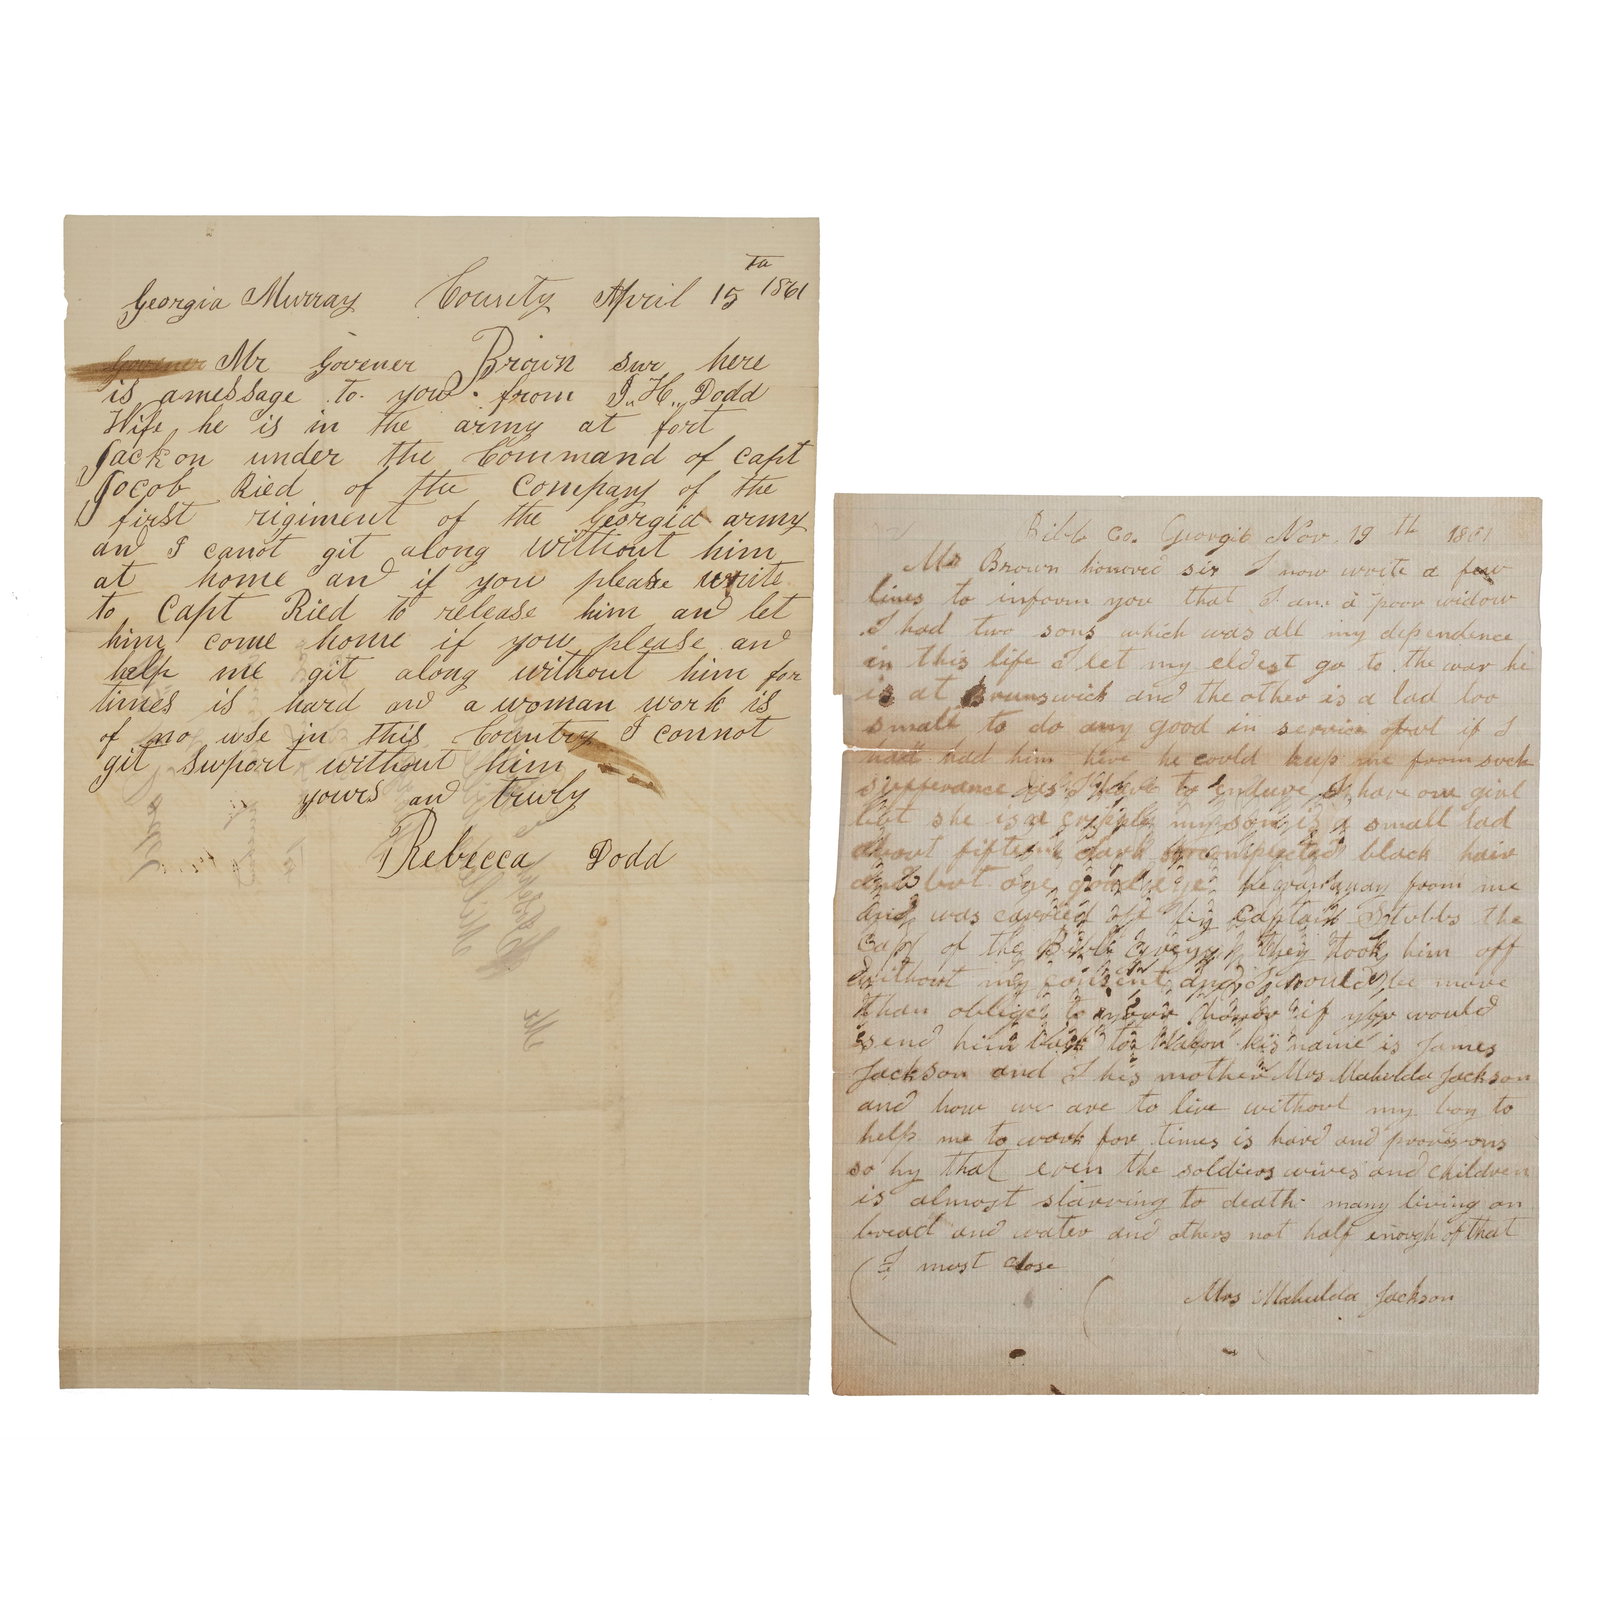 Georgia Murray County April 15 th 1861
Govener Mr Govener Brown sur here
is amessage to you from J. H. Dodd
Wife he is in the army at fort
Jackon under the Command of capt
Jocob Ried of the company of the
first rigiment of the Georgia army
and I canot git along without him
at home and if you please write
to Capt Ried to release him and let
him come home if you please and
help me git along without him for
times is hard and a woman work is
of no use in this Country I connot
git Swport without him
yours and truly
Rebecca Dodd
Bibb Co. Georgia Nov. 19 th 1861
Mr Brown honored sir I now write a few
lines to inform you that I am a poor widow
I had two sons which was all my dependence
in this life I let my eldest go to the war he
is at Brunswick and the other is a lad too
small to do any good in service but if I
had him here he could keep me from such
sufferance as I have to endure I have one girl
but she is a cripple my son is a small lad
about fifteen dark complected black hair
and but one good eye he ran away from me
and was carried off by Captain Stubbs the
Cap of the Bibb they took him off
without my consent and I would be more
than oblige to your honor if you would
send him back to Macon his name is James
Jackson and I his mother Mrs Mahulda Jackson
and how we are to live without my boy to
help me to work for times is hard and provisons
so hy that even the soldiers wives and children
is almost starving to death many living on
bread and water and others not half enough of that
I must close
Mrs Mahulda Jackson